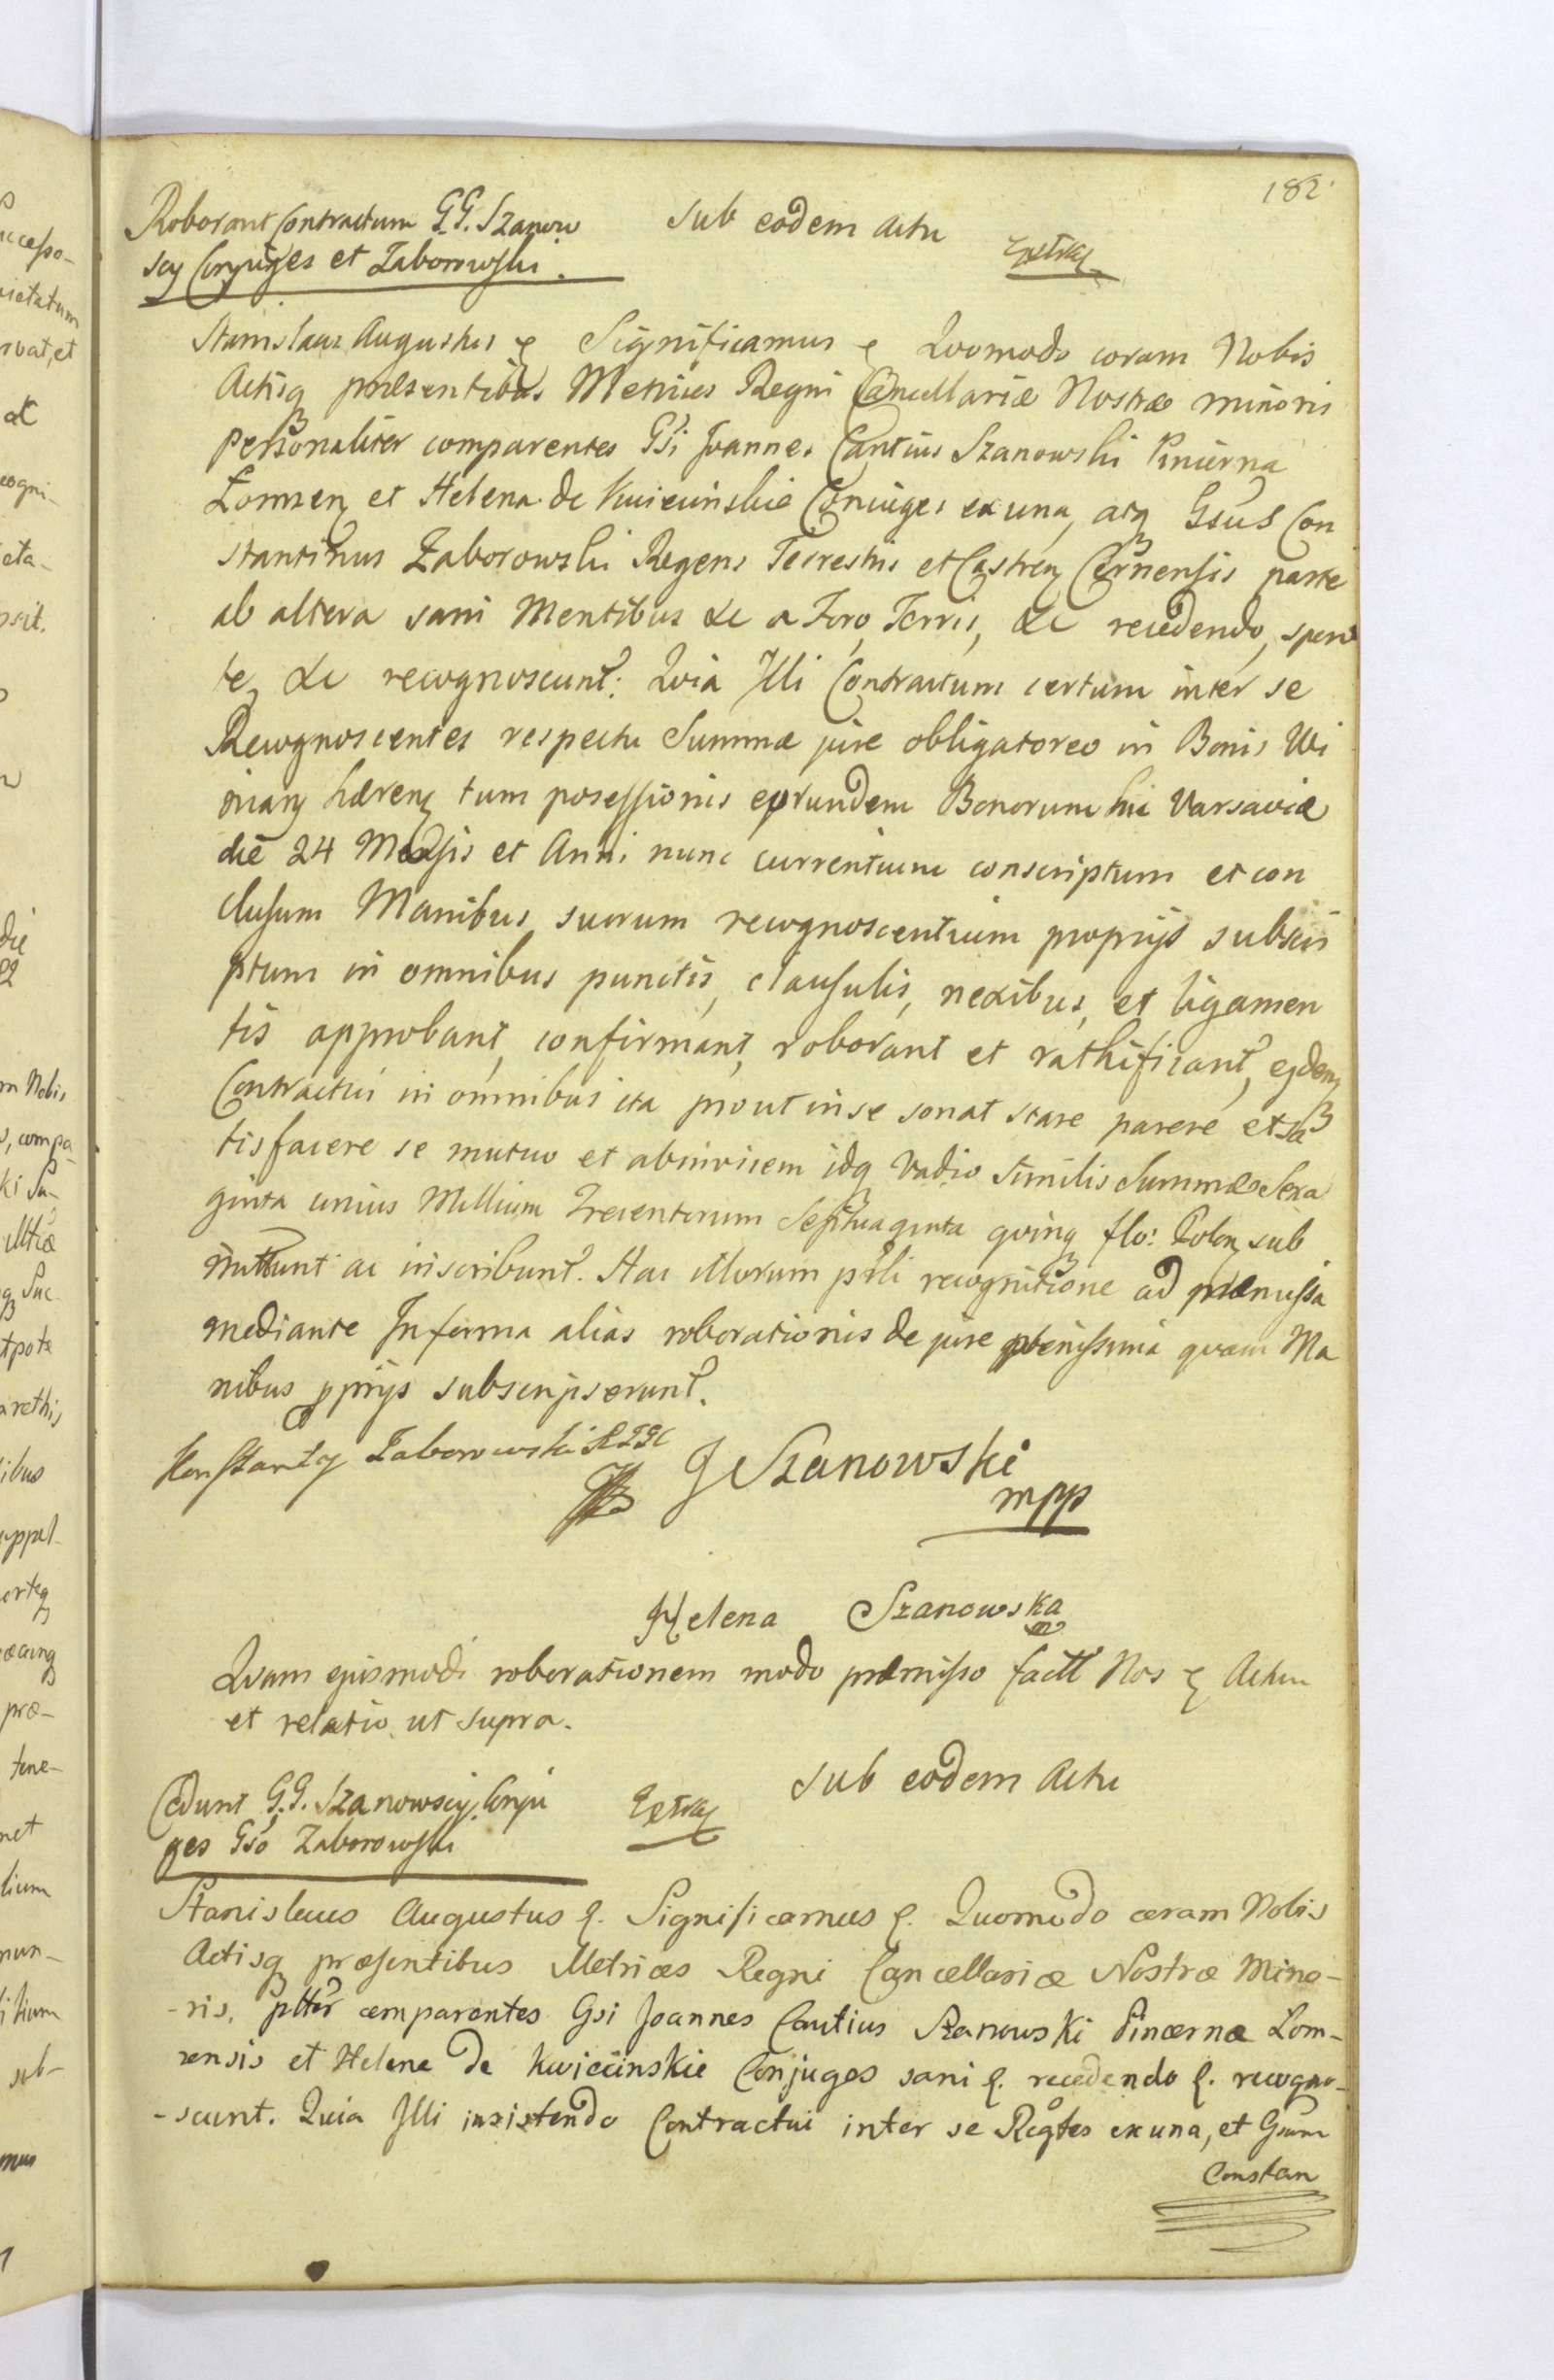 182
Roborant Contractum G.G. Szanow
scy Conjuges et Zaborowski.
Sub eodem Actu
Stanislaus Augustus Significamus Quomodo coram Nobis
Actisq præsentibus Metrices Regni Cancellariæ Nostræ minoris
personaliter comparentes Gsi Joannes Cantius Szanowski Pincerna
Lomzen et Helena de Kwiecinskie Conjuges ex una, atq Gsus Con
stantinus Zaborowski Regens Terrestris et Castren Cernensis parte
ab altera sani Mentibus &c a Foro, Terris, &c recedendo, spon
te, &c recognoscunt: Quia Illi Contractum certum inter se
Recognoscentes respectu Summæ jure obligatoreo in Bonis
hæren tum posessionis eorundem Bonorum hic Varsaviæ
die 24 Mensis et Anni nunc currentium conscriptum et con
clusum Manibus suorum recognoscentium proprijs subscri
ptum in omnibus punctis, clausulis, nexibus, et ligamen
tis approbant, confirmant, roborant et rathificant, ejdem
Contractui in omnibus ita prout in se sonat stare parere et sa
tisfacere se mutuo et abinvicem idq Vadio similis Summæ Sexa
ginta unius Millium Trecentorum Septuaginta quinq flo: Polon sub
mittunt ac inscribunt. Hac illorum pnli recognitione ad præmissa
mediante In forma alias roborationis de jure plenissima quam Ma
nibus pprijs subscripserunt.
Konstanty Zaborowski RZGC
J Szanowski
mpp
Helena Szanowska
Quam ejusmodi roborationem modo præmisso factt Nos Actum
et relatio ut supra.
Cedunt G.G. Szanowscy Conju
ges Gso Zaborowski
Sub eodem Actu
Stanislaus Augustus Significamus Quomodo coram Nobis
Actisq præsentibus Metrices Regni Cancellariæ Nostræ Mino-
-ris, plter comparentes Gsi Joannes Cantius Szanowski Pincerna Lom-
zensis et Helena de Kwiecinskie Conjuges sani recedendo recogno-
-scunt. Quia Illi inxistendo Contractui inter se Rcgtes ex una, et Gsum
Constan